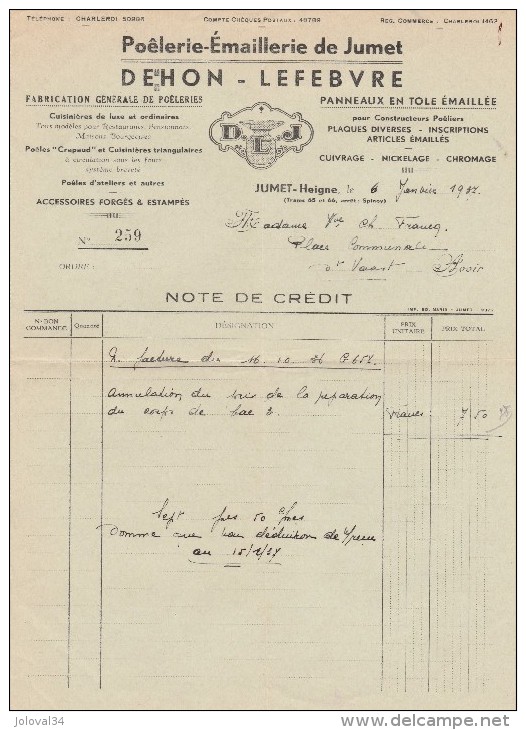 TÉLÉPHONE : CHARLEROI 50986 COMPTE CHÈQUES POSTAUX: 40789 REG. COMMERCE - CHARLEROI 1462
Poêlerie-Émaillerie de Jumet
DEHON - LEFEBVRE
FABRICATION GÉNÉRALE DE POÊLERIES
Cuisinières de luxe et ordinaires
Tous modèles pour Restaurants, Pensionnats,
Maisons Bourgeoises
Poêles "Crapaud" et Cuisinières triangulaires
à circulation sous les fours
système breveté
Poêles d'ateliers et autres
ACCESSOIRES FORGÉS & ESTAMPÉS
D L J
PANNEAUX EN TÔLE ÉMAILLÉE
pour Constructeurs Poêliers
PLAQUES DIVERSES - INSCRIPTIONS
ARTICLES ÉMAILLÉS
CUIVRAGE - NICKELAGE - CHROMAGE
JUMET-Heigne, le 6 Janvier 1937.
(Trams 65 et 66, arrêt: Spinoy)
N° 259
Madame Vve Ch. Francq.
Place Communale
ORDRE :
St Vaast
NOTE DE CRÉDIT
N° BON COMMANDE Quantité DÉSIGNATION PRIX UNITAIRE PRIX TOTAL
N. facture du 16.10.36
Annulation du prix de la réparation
du corps de bac 2. Francs: 7.50
Sept frcs 50 cmes
Somme que
au 15/1/37
joloval34 delcampe.net